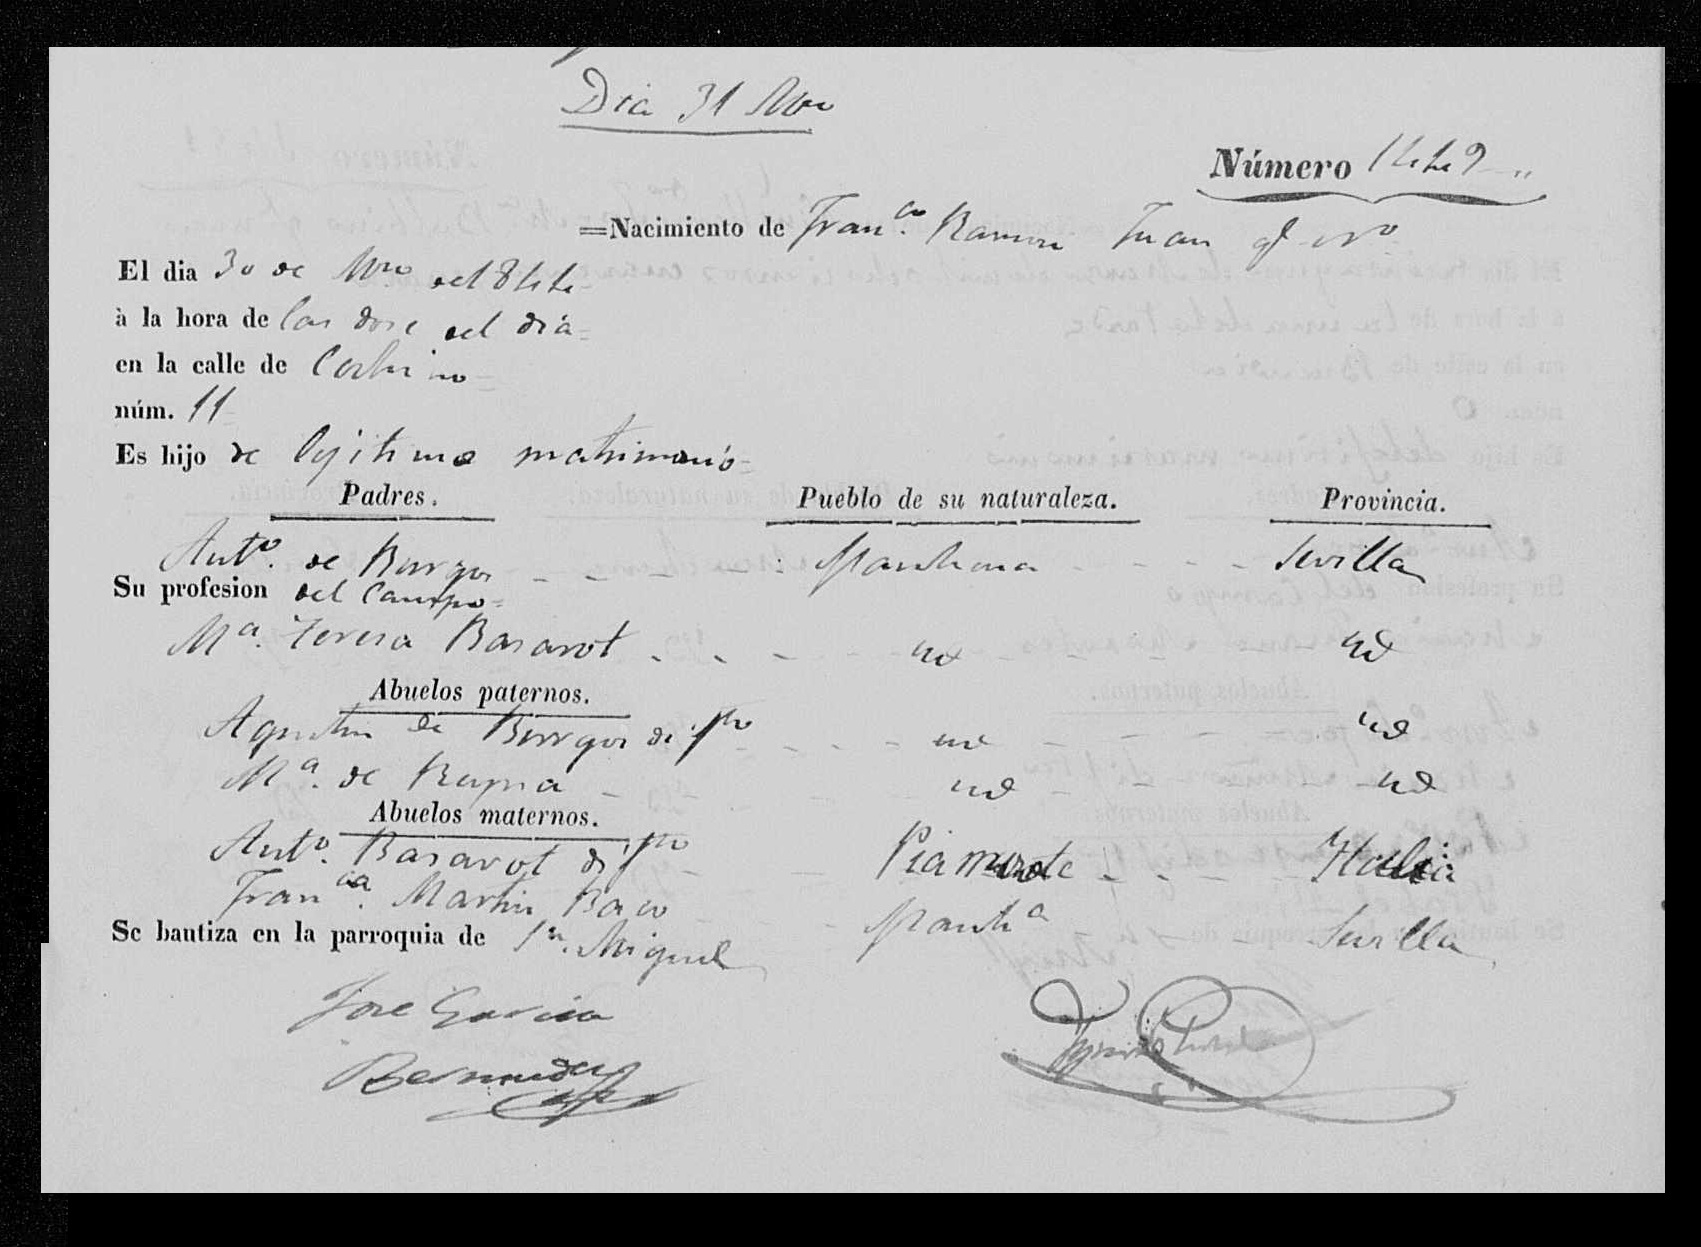 Dia 31
Número
=Nacimiento de Fran.co Ramon Juan
El dia 30 de
à la hora de las dose del dia=
en la calle de
núm. 11=
Es hijo de lejitimo matrimonio=
Padres. Pueblo de su naturaleza. Provincia.
Anto. de Burgos Marchena Sevilla
Su profesion del Campo=
Ma. Teresa Basarot id id
Abuelos paternos.
Agustin de Burgos id id
Ma. de id id
Abuelos maternos.
Anto. Basarot Piamonte Italia
Fran.ca Martin Marcha
Se bautiza en la parroquia de Sn. Miguel Sevilla
Jose Garcia
Bermudez